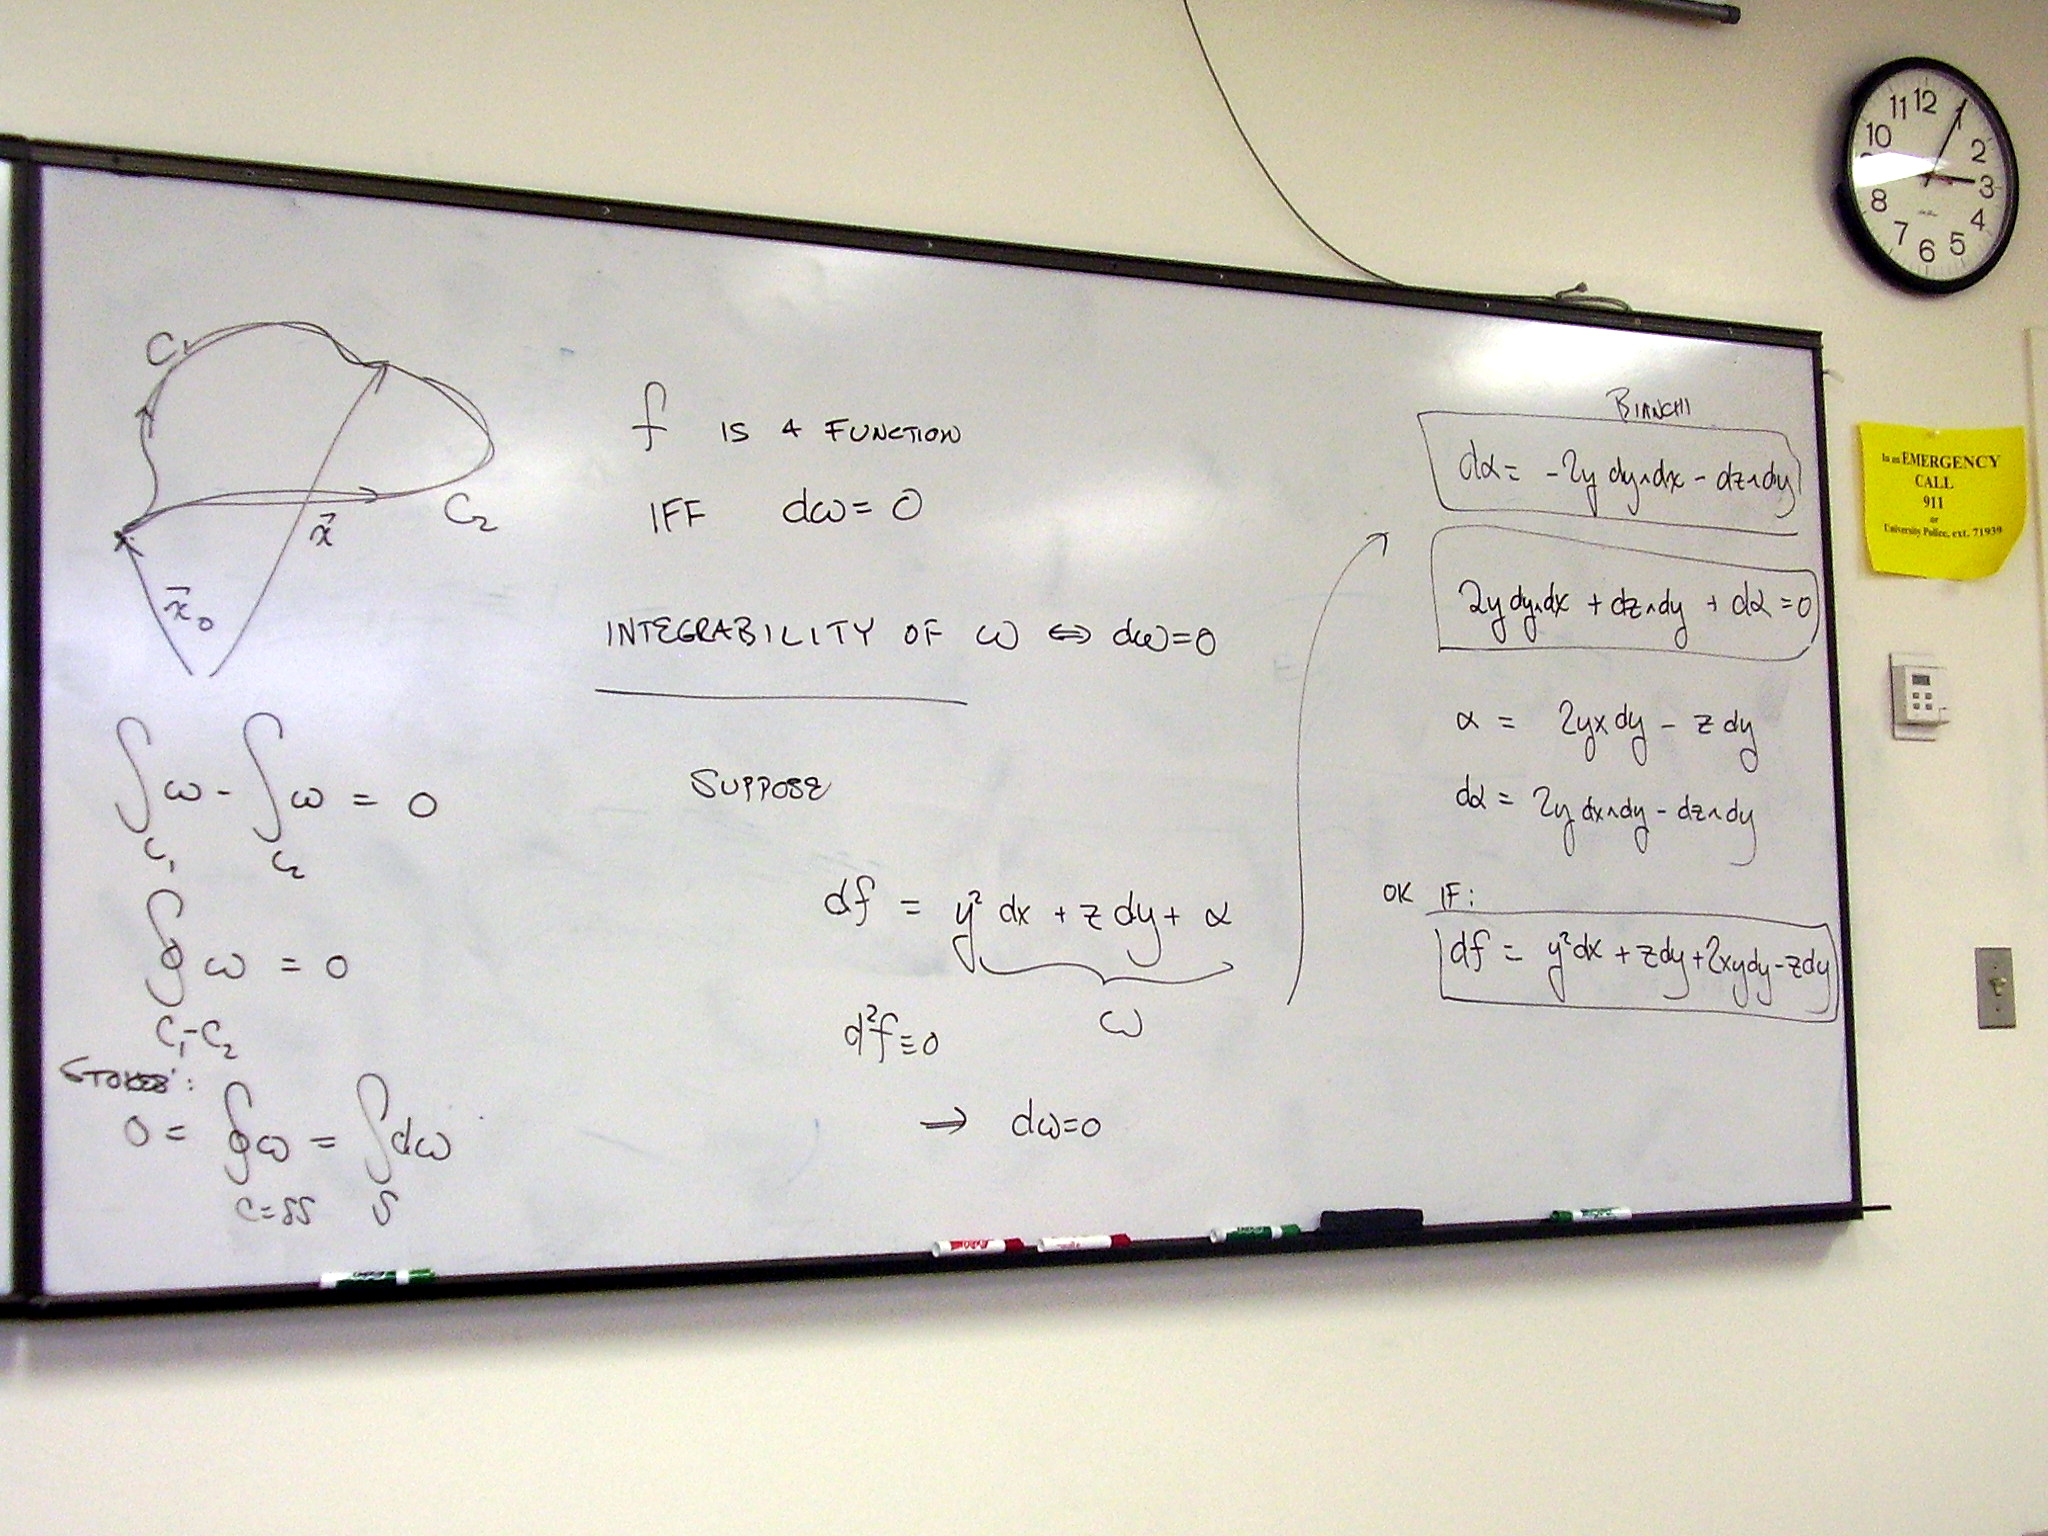 C₁
C₂
x⃗
x⃗₀
∫_C₁ ω - ∫_C₂ ω = 0
∮_C₁-C₂ ω = 0
STOKES':
0 = ∮_C=δS ω = ∫_S dω
f IS A FUNCTION
IFF dω = 0
INTEGRABILITY OF ω ⇔ dω=0
SUPPOSE
df = y² dx + z dy + α
ω
d²f ≡ 0
→ dω=0
BIANCHI
dα = -2y dy∧dx - dz∧dy
2y dy∧dx + dz∧dy + dα = 0
α = 2yx dy - z dy
dα = 2y dx∧dy - dz∧dy
OK IF:
df = y²dx + zdy + 2xydy - zdy
11 12 1
10 2
3
8 4
7 6 5
In an EMERGENCY
CALL
911
or
University Police, ext. 71939